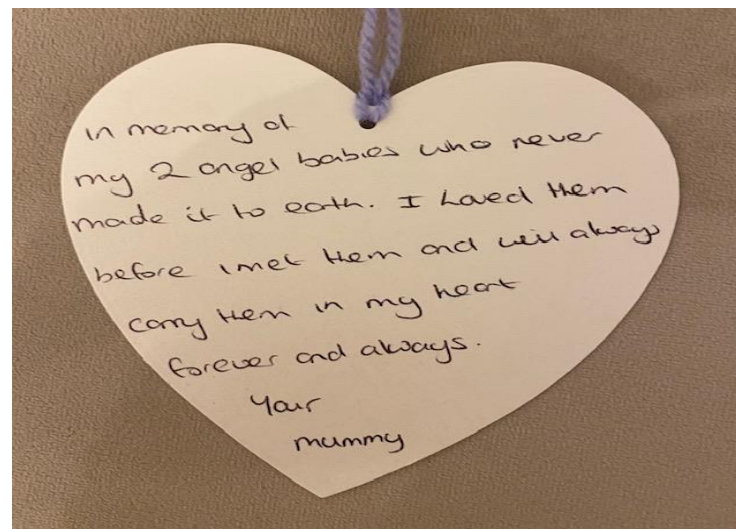 In memory of
my 2 angel babies who never
made it to earth. I loved them
before I met them and will always
carry them in my heart
forever and always.
Your
mummy